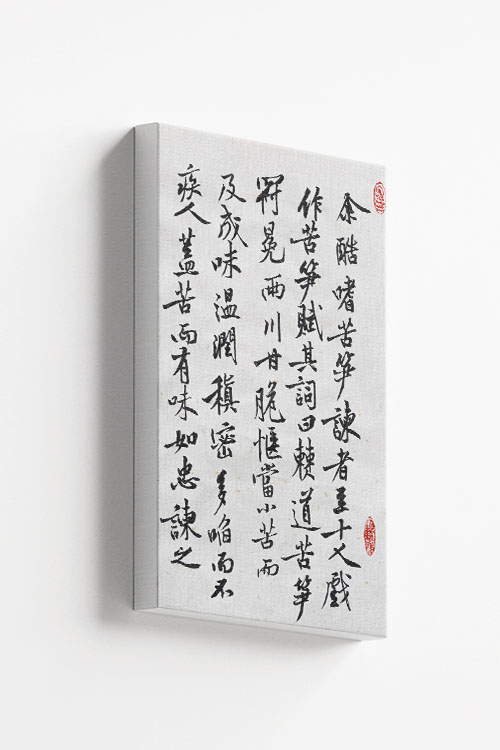 余酷嗜苦笋諫者至十人戲
作苦笋賦其詞曰僰道苦笋
冠冕兩川甘脆愜當小苦而
反成味溫潤稹密多啗而不
疾人蓋苦而有味如忠諫之